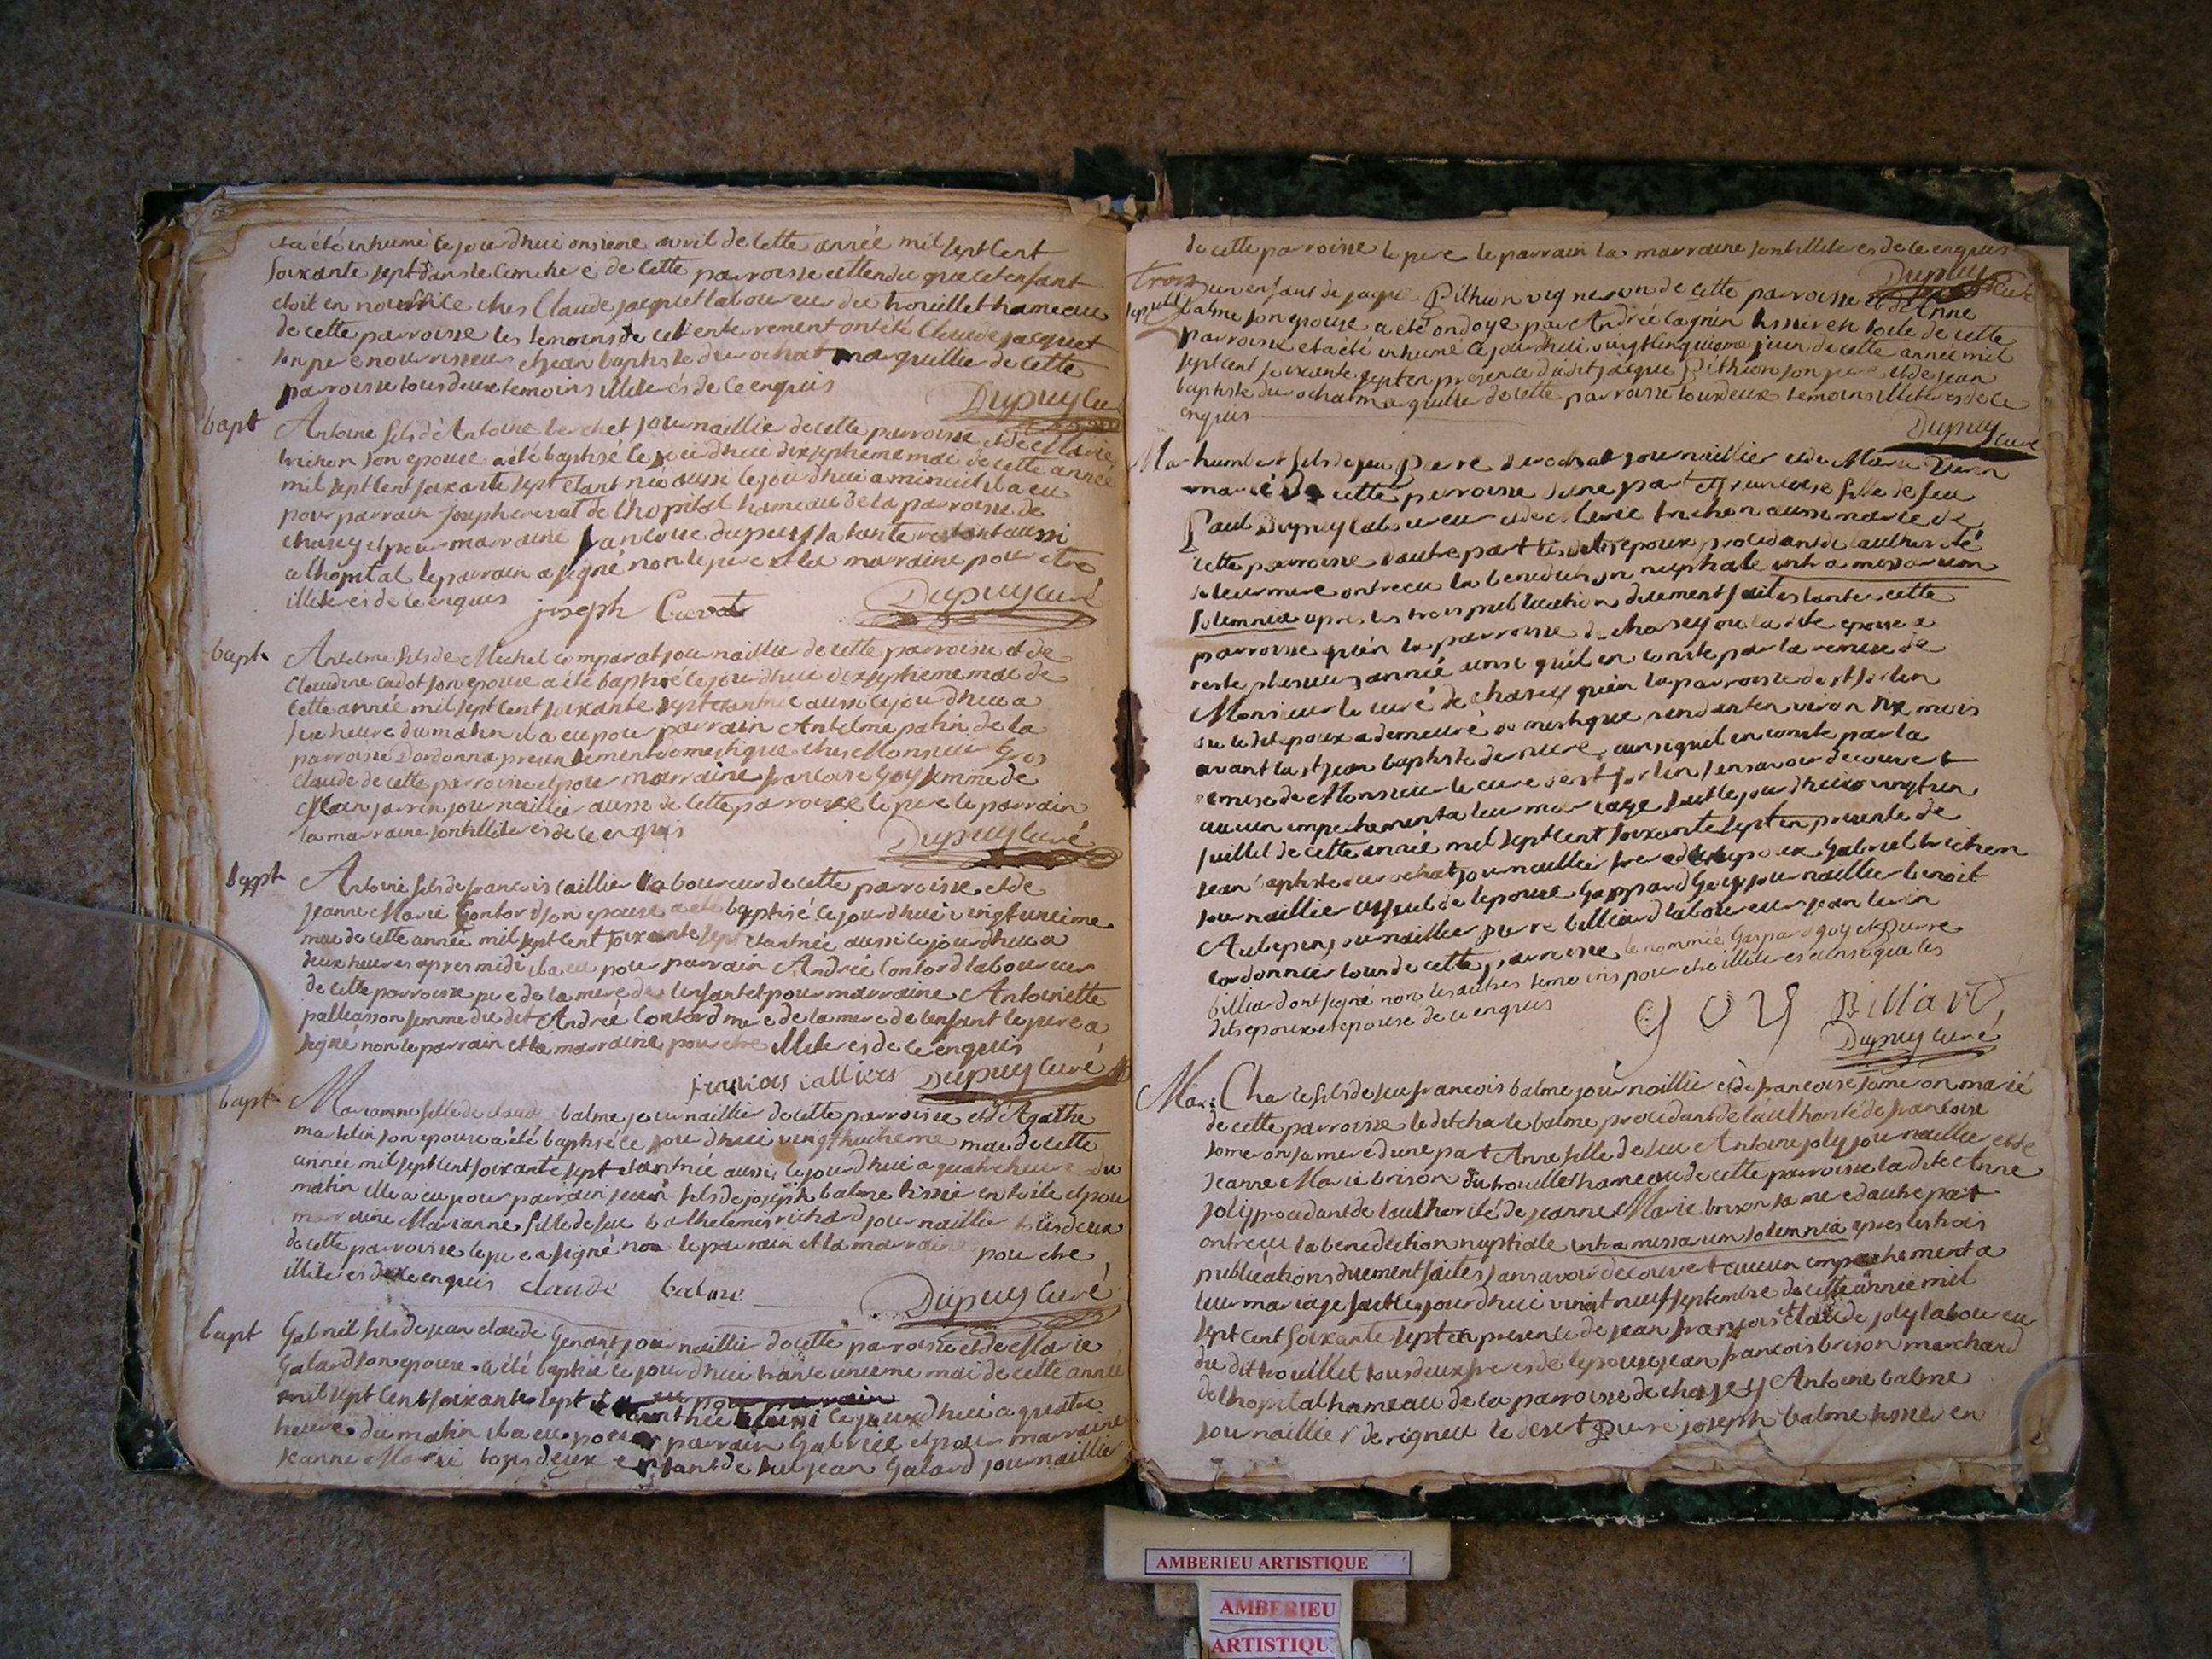 et a été inhumé ce jourdhui onsieme avril de cette année mil sept cent
soixante sept dans le cimetiere de cette parroisse attendu que cet enfant
etoit en nourrice ches Claude jacquet laboureur du trouillet hameau
de cette parroisse les temoins de cet enterrement ont été Claude jacquet
son pere nourrisseur et jean baptiste durochat marguillie de cette
parroisse tous deux temoins illiterés de ce enquis
Dupuy curé
bapt
Antoine fils de Antoine journaillie de cette parroisse et de Marie
brichon son epouse a été baptisé ce jourdhui dixseptieme mai de cette année
mil sept cent soixante sept etant né aussi ce jourdhui a minuit il a eu
pour parrain joseph crevat de lhopital hameau de la parroisse de
chasey et pour marraine francoise dupuy sa tante restant aussi
a lhopital le parrain a signé non le pere et la marraine pour etre
illiterés de ce enquis joseph Crevat
Dupuy curé
bapt
Antelme fils de Michel comparat journaillie de cette parroisse et de
Claudine cadot son epouse a été baptisé ce jourdhui dixseptieme mai de
cette année mil sept cent soixante sept etant né aussi ce jourdhui a
six heure du matin il a eu pour parrain Antelme patin de la
parroisse Dordonna presentement domestique ches Monsieur gros
claude de cette parroisse et pour marraine francoise Goy femme de
journaillier aussi de cette parroisse le pere le parrain
la marraine sont illiterés de ce enquis
Dupuy curé
bapt
Antoine fils de francois caillier laboureur de cette parroisse et de
jeanne Marie Contord son epouse a été baptisé ce jourdhui vingt unieme
mai de cette année mil sept cent soixante sept etant née aussi ce jourdhui a
deux heures apres midi il a eu pour parrain Andrée Contord laboureur
de cette parroisse pere de la mere de lenfant et pour marraine Antoinette
palliasson femme du dit Andrée Contord mere de la mere de lenfant le pere a
signé non le parrain et la marraine pour etre illiterés de ce enquis
francois calliers Dupuy curé
bapt
Marianne fille de claude balme journaillier de cette parroisse et d'Agathe
martelin son epouse a été baptisée ce jourdhui vingt huitieme mai de cette
année mil sept cent soixante sept etant née aussi ce jourdhui a quatre heure du
matin elle a eu pour parrain fils de joseph balme tissie en toile et pour
marraine Marianne fille de feu bathelemis richard journaillie tous deux
de cette parroisse le pere a signé non le parrain et la marraine pour etre
illiterés de ce enquis claude balme
Dupuy curé
bapt
Gabriel fils de jean claude Genant journaillier de cette parroisse et de Marie
Galard son epouse a été baptisé ce jourdhui trante unieme mai de cette année
mil sept cent soixante sept il a eu pour parrain
etant né aussi ce jourdhui a quatre
heure du matin il a eu pour parrain Gabriel et pour marraine
jeanne Marie tous deux enfant de feu jean Galard journaillie
de cette parroisse le pere le parrain la marraine sont illiterés de ce enquis
Dupuy Curé
sepult
un enfant de jaque Pithion vigneron de cette parroisse et d'Anne
balme son epouse a été ondoyé par Andrée cagnin tissie en toile de cette
parroisse et a été inhumé ce jourdhui vingt cinquieme juin de cette année mil
sept cent soixante sept en presence dudit jaque Pithion son pere et de jean
baptiste durochat marguillie de cette parroisse tous deux temoins illiterés de ce
enquis
Dupuy curé
Mar
humbert fils de feu pierre durochat journaillier et de Marie
marié de cette parroisse dune part et francoise fille de feu
Paul Dupuy laboureur et de Marie brichon aussi marié de
cette parroisse d'autre part les dits epoux procedant de l'authorité
de leur mere ont recu la benediction nuptiale intra missarum
solemnia apres les trois publications duement faites tant en cette
parroisse qu'en la parroisse de chasey ou la dite epouse a
resté plusieurs année ainsi qu'il en conste par la remise de
Monsieur le curé de chasey qu'en la parroisse de st sorlin
ou le dit epoux a demeuré domestique pendant environ six mois
avant la st jean baptiste derniere ainsi quil en conste par la
remise de Monsieur le curé de st sorlin sans avoir decouvert
aucun impechement a leur mariage fait le jourdhui vingt un
juillet de cette année mil sept cent soixante sept en presence de
jean baptiste durochat journaillier frere de lepoux Gabriel brichon
journaillier de lepouse Gaspard Goy journaillier benoit
Aubepin journaillier pierre billiard laboureur jean
cordonnier tous de cette parroisse le nommée Gaspard goy et Pierre
billiard ont signé non les autres temoins pour etre illiterés ainsi que les
dits epoux et epouse de ce enquis goy Billiard
Dupuy curé
Mar
Charle fils de feu francois balme journaillie et de francoise someron marié
de cette parroisse le dit charle balme procedant de l'authorité de francoise
someron sa mere dune part Anne fille de feu Antoine joly journaillier et de
jeanne Marie brison du trouillet hameau de cette parroisse la dite Anne
joly procedant de lautherité de jeanne Marie brison sa mere d'autre part
ont recu la benediction nuptiale intra missarum solemnia apres les trois
publications duement faites sans avoir decouvert aucun empechement a
leur mariage fait ce jourdhui vingt neuf septembre de cette année mil
sept cent soixante sept en presence de jean francois Claude joly laboureur
du dit trouillet tous deux freres de lepouse jean francois brison marchand
de lhopital hameau de la parroisse de chasey Antoine balme
journaillier de rigneu le desert pierre joseph balme tissie en
AMBERIEU ARTISTIQUE
AMBERIEU
ARTISTIQU